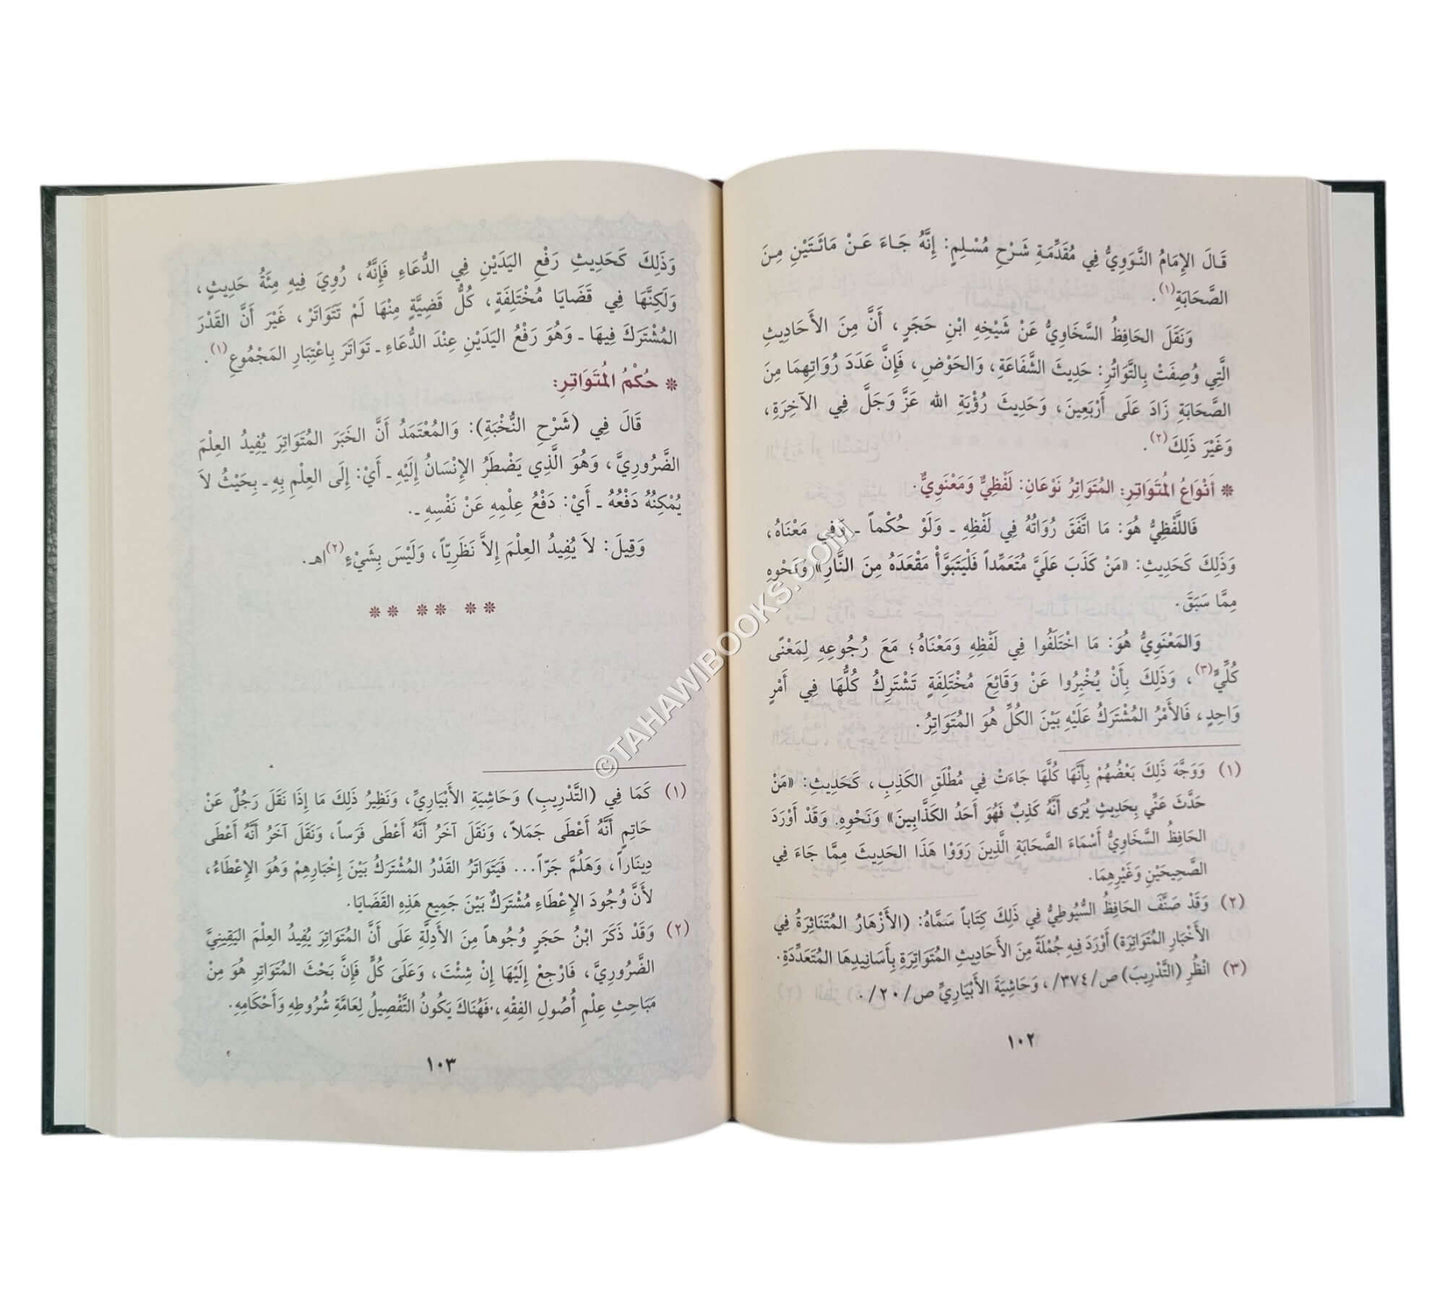 قَالَ الإِمَامُ النَّوَوِيُّ فِي مُقَدِّمَةِ شَرْحِ مُسْلِمٍ: إِنَّهُ جَاءَ عَنْ مَائَتَيْنِ مِنَ
الصَّحَابَةِ(١).
وَنَقَلَ الحَافِظُ السَّخَاوِيُّ عَنْ شَيْخِهِ ابْنِ حَجَرٍ، أَنَّ مِنَ الأَحَادِيثِ
الَّتِي وُصِفَتْ بِالتَّوَاتُرِ: حَدِيثَ الشَّفَاعَةِ، وَالحَوْضِ، فَإِنَّ عَدَدَ رُوَاتِهِمَا مِنَ
الصَّحَابَةِ زَادَ عَلَى أَرْبَعِينَ، وَحَدِيثَ رُؤْيَةِ الله عَزَّ وَجَلَّ فِي الآخِرَةِ،
وَغَيْرَ ذَلِكَ(٢).
* أَنْوَاعُ المُتَوَاتِرِ: المُتَوَاتِرُ نَوْعَانِ: لَفْظِيٌّ وَمَعْنَوِيٌّ.
فَاللَّفْظِيُّ هُوَ: مَا اتَّفَقَ رُوَاتُهُ فِي لَفْظِهِ ـ وَلَوْ حُكْماً ـ وَفِي مَعْنَاهُ،
وَذَلِكَ كَحَدِيثِ: «مَنْ كَذَبَ عَلَيَّ مُتَعَمِّداً فَلْيَتَبَوَّأْ مَقْعَدَهُ مِنَ النَّارِ» وَنَحْوِهِ
مِمَّا سَبَقَ.
وَالمَعْنَوِيُّ هُوَ: مَا اخْتَلَفُوا فِي لَفْظِهِ وَمَعْنَاهُ؛ مَعَ رُجُوعِهِ لِمَعْنًى
كُلِّيٍّ(٣)، وَذَلِكَ بِأَنْ يُخْبِرُوا عَنْ وَقَائِعَ مُخْتَلِفَةٍ تَشْتَرِكُ كُلُّهَا فِي أَمْرٍ
وَاحِدٍ، فَالأَمْرُ المُشْتَرَكُ عَلَيْهِ بَيْنَ الكُلِّ هُوَ المُتَوَاتِرُ.
(١) وَوَجَّهَ ذَلِكَ بَعْضُهُمْ بِأَنَّهَا كُلَّهَا جَاءَتْ فِي مُطْلَقِ الكَذِبِ، كَحَدِيثِ: «مَنْ
حَدَّثَ عَنِّي بِحَدِيثٍ يُرَى أَنَّهُ كَذِبٌ فَهُوَ أَحَدُ الكَذَّابِينَ» وَنَحْوِهِ. وَقَدْ أَوْرَدَ
الحَافِظُ السَّخَاوِيُّ أَسْمَاءَ الصَّحَابَةِ الَّذِينَ رَوَوْا هَذَا الحَدِيثَ مِمَّا جَاءَ فِي
الصَّحِيحَيْنِ وَغَيْرِهِمَا.
(٢) وَقَدْ صَنَّفَ الحَافِظُ السُّيُوطِيُّ فِي ذَلِكَ كِتَاباً سَمَّاهُ: (الأَزْهَارُ المُتَنَاثِرَةُ فِي
الأَخْبَارِ المُتَوَاتِرَةِ) أَوْرَدَ فِيهِ جُمْلَةً مِنَ الأَحَادِيثِ المُتَوَاتِرَةِ بِأَسَانِيدِهَا المُتَعَدِّدَةِ.
(٣) انْظُرِ (التَّدْرِيبَ) ص/٣٧٤/، وَحَاشِيَةَ الأَبْيَارِيِّ ص/٢٠/.
١٠٢
وَذَلِكَ كَحَدِيثِ رَفْعِ اليَدَيْنِ فِي الدُّعَاءِ فَإِنَّهُ، رُوِيَ فِيهِ مِئَةُ حَدِيثٍ،
وَلَكِنَّهَا فِي قَضَايَا مُخْتَلِفَةٍ، كُلُّ قَضِيَّةٍ مِنْهَا لَمْ تَتَوَاتَرْ، غَيْرَ أَنَّ القَدْرَ
المُشْتَرَكَ فِيهَا ـ وَهُوَ رَفْعُ اليَدَيْنِ عِنْدَ الدُّعَاءِ ـ تَوَاتَرَ بِاعْتِبَارِ المَجْمُوعِ(١).
* حُكْمُ المُتَوَاتِرِ:
قَالَ فِي (شَرْحِ النُّخْبَةِ): وَالمُعْتَمَدُ أَنَّ الخَبَرَ المُتَوَاتِرَ يُفِيدُ العِلْمَ
الضَّرُورِيَّ، وَهُوَ الَّذِي يَضْطَرُّ الإِنْسَانُ إِلَيْهِ ـ أَيْ: إِلَى العِلْمِ بِهِ ـ بِحَيْثُ لاَ
يُمْكِنُهُ دَفْعُهُ ـ أَيْ: دَفْعُ عِلْمِهِ عَنْ نَفْسِهِ ـ.
وَقِيلَ: لاَ يُفِيدُ العِلْمَ إِلاَّ نَظَرِيّاً، وَلَيْسَ بِشَيْءٍ(٢)اهـ.
** ** **
(١) كَمَا فِي (التَّدْرِيبِ) وَحَاشِيَةِ الأَبْيَارِيِّ، وَنَظِيرُ ذَلِكَ مَا إِذَا نَقَلَ رَجُلٌ عَنْ
حَاتِمٍ أَنَّهُ أَعْطَى جَمَلاً، وَنَقَلَ آخَرُ أَنَّهُ أَعْطَى فَرَساً، وَنَقَلَ آخَرُ أَنَّهُ أَعْطَى
دِينَاراً، وَهَلُمَّ جَرّاً... فَيَتَوَاتَرُ القَدْرُ المُشْتَرَكُ بَيْنَ إِخْبَارِهِمْ وَهُوَ الإِعْطَاءُ،
لأَنَّ وُجُودَ الإِعْطَاءِ مُشْتَرَكٌ بَيْنَ جَمِيعِ هَذِهِ القَضَايَا.
(٢) وَقَدْ ذَكَرَ ابْنُ حَجَرٍ وُجُوهاً مِنَ الأَدِلَّةِ عَلَى أَنَّ المُتَوَاتِرَ يُفِيدُ العِلْمَ اليَقِينِيَّ
الضَّرُورِيَّ، فَارْجِعْ إِلَيْهَا إِنْ شِئْتَ، وَعَلَى كُلٍّ فَإِنَّ بَحْثَ المُتَوَاتِرِ هُوَ مِنْ
مَبَاحِثِ عِلْمِ أُصُولِ الفِقْهِ، فَهُنَاكَ يَكُونُ التَّفْصِيلُ لِعَامَّةِ شُرُوطِهِ وَأَحْكَامِهِ.
١٠٣
©TAHAWIBOOKS.COM